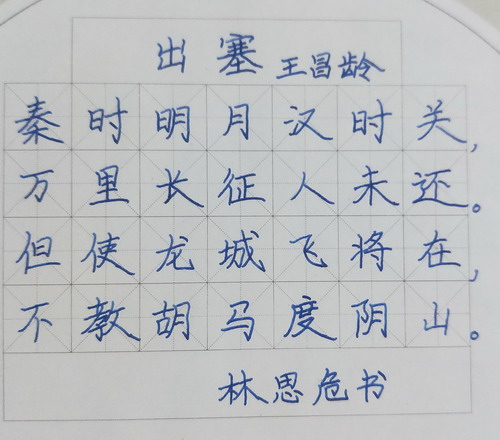 出塞 王昌龄
秦时明月汉时关，
万里长征人未还。
但使龙城飞将在，
不教胡马度阴山。
林思危书